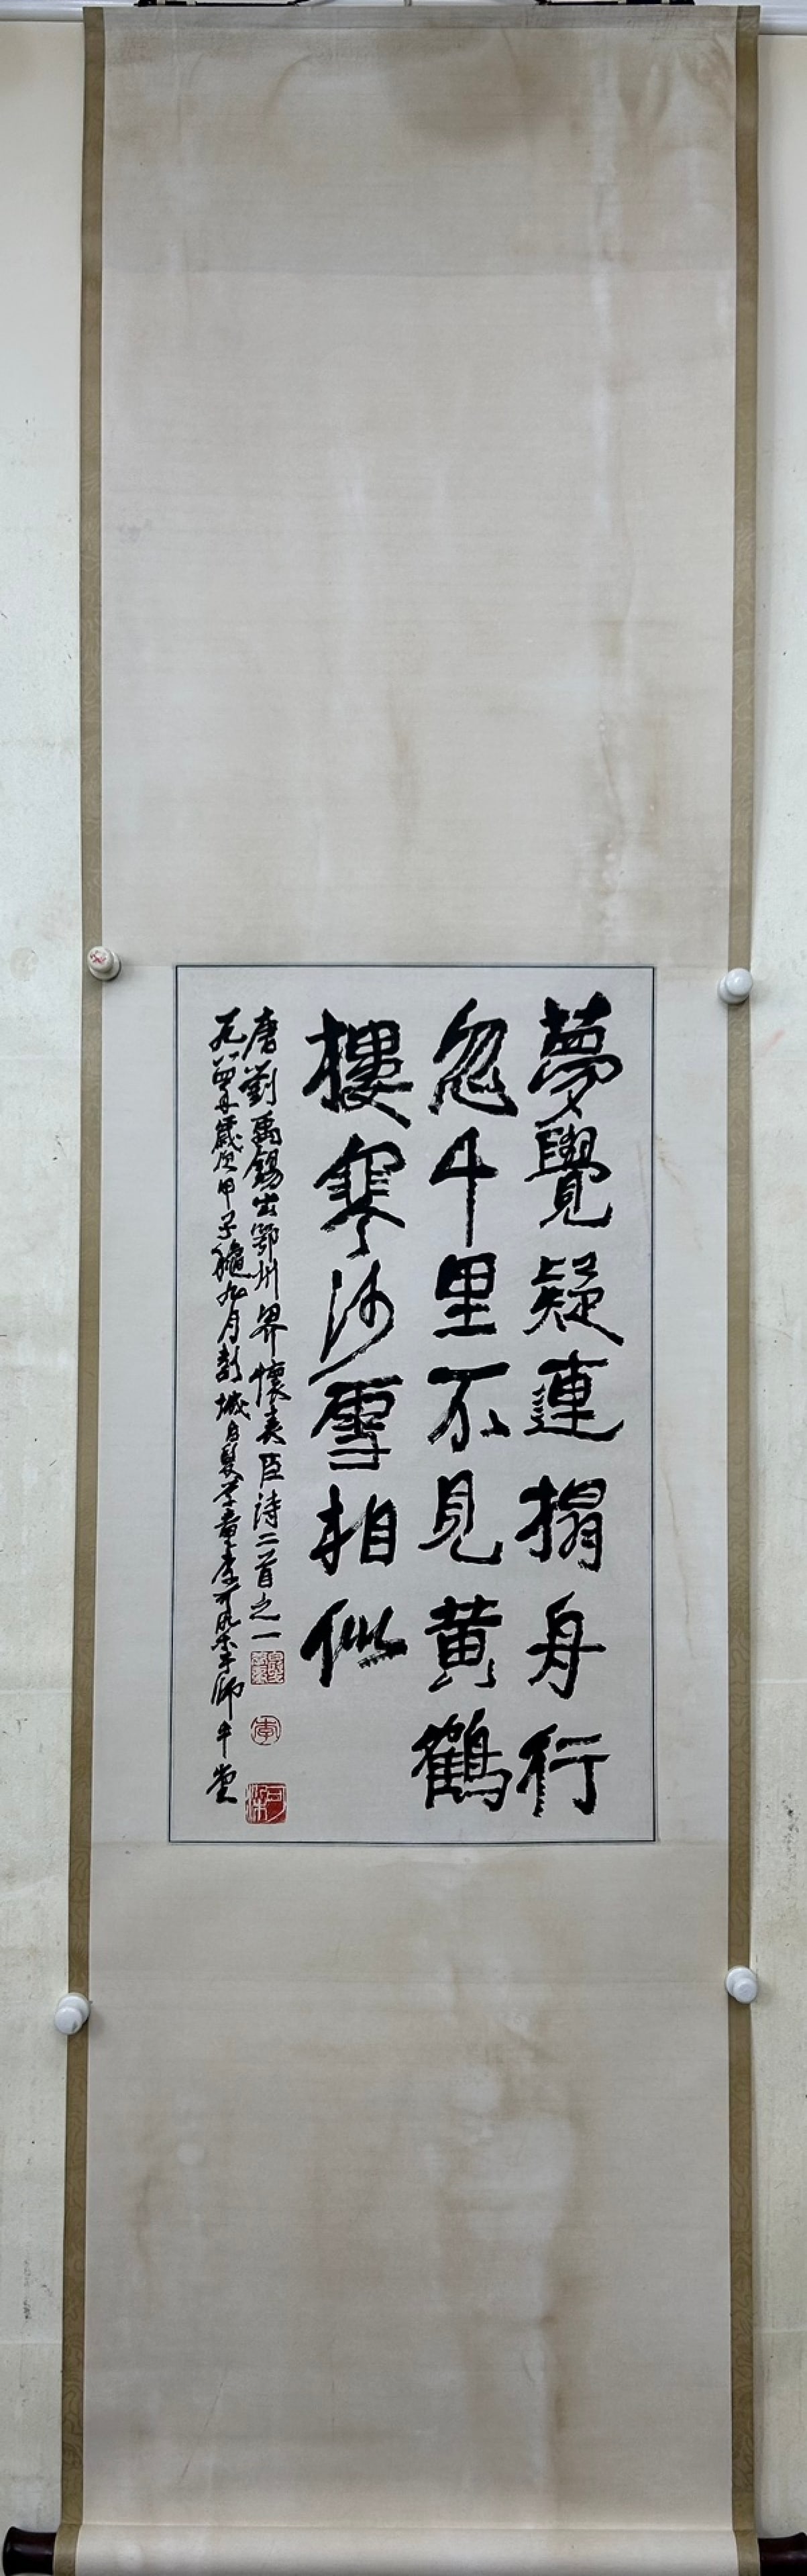 夢覺疑連榻舟行
忽千里不見黄鶴
樓寒沙雪相似
唐劉禹錫出鄂州界懷表臣詩二首之一
一九八四年歲次甲子龝九月彭城白髮學童李可染于師牛堂
李
可染